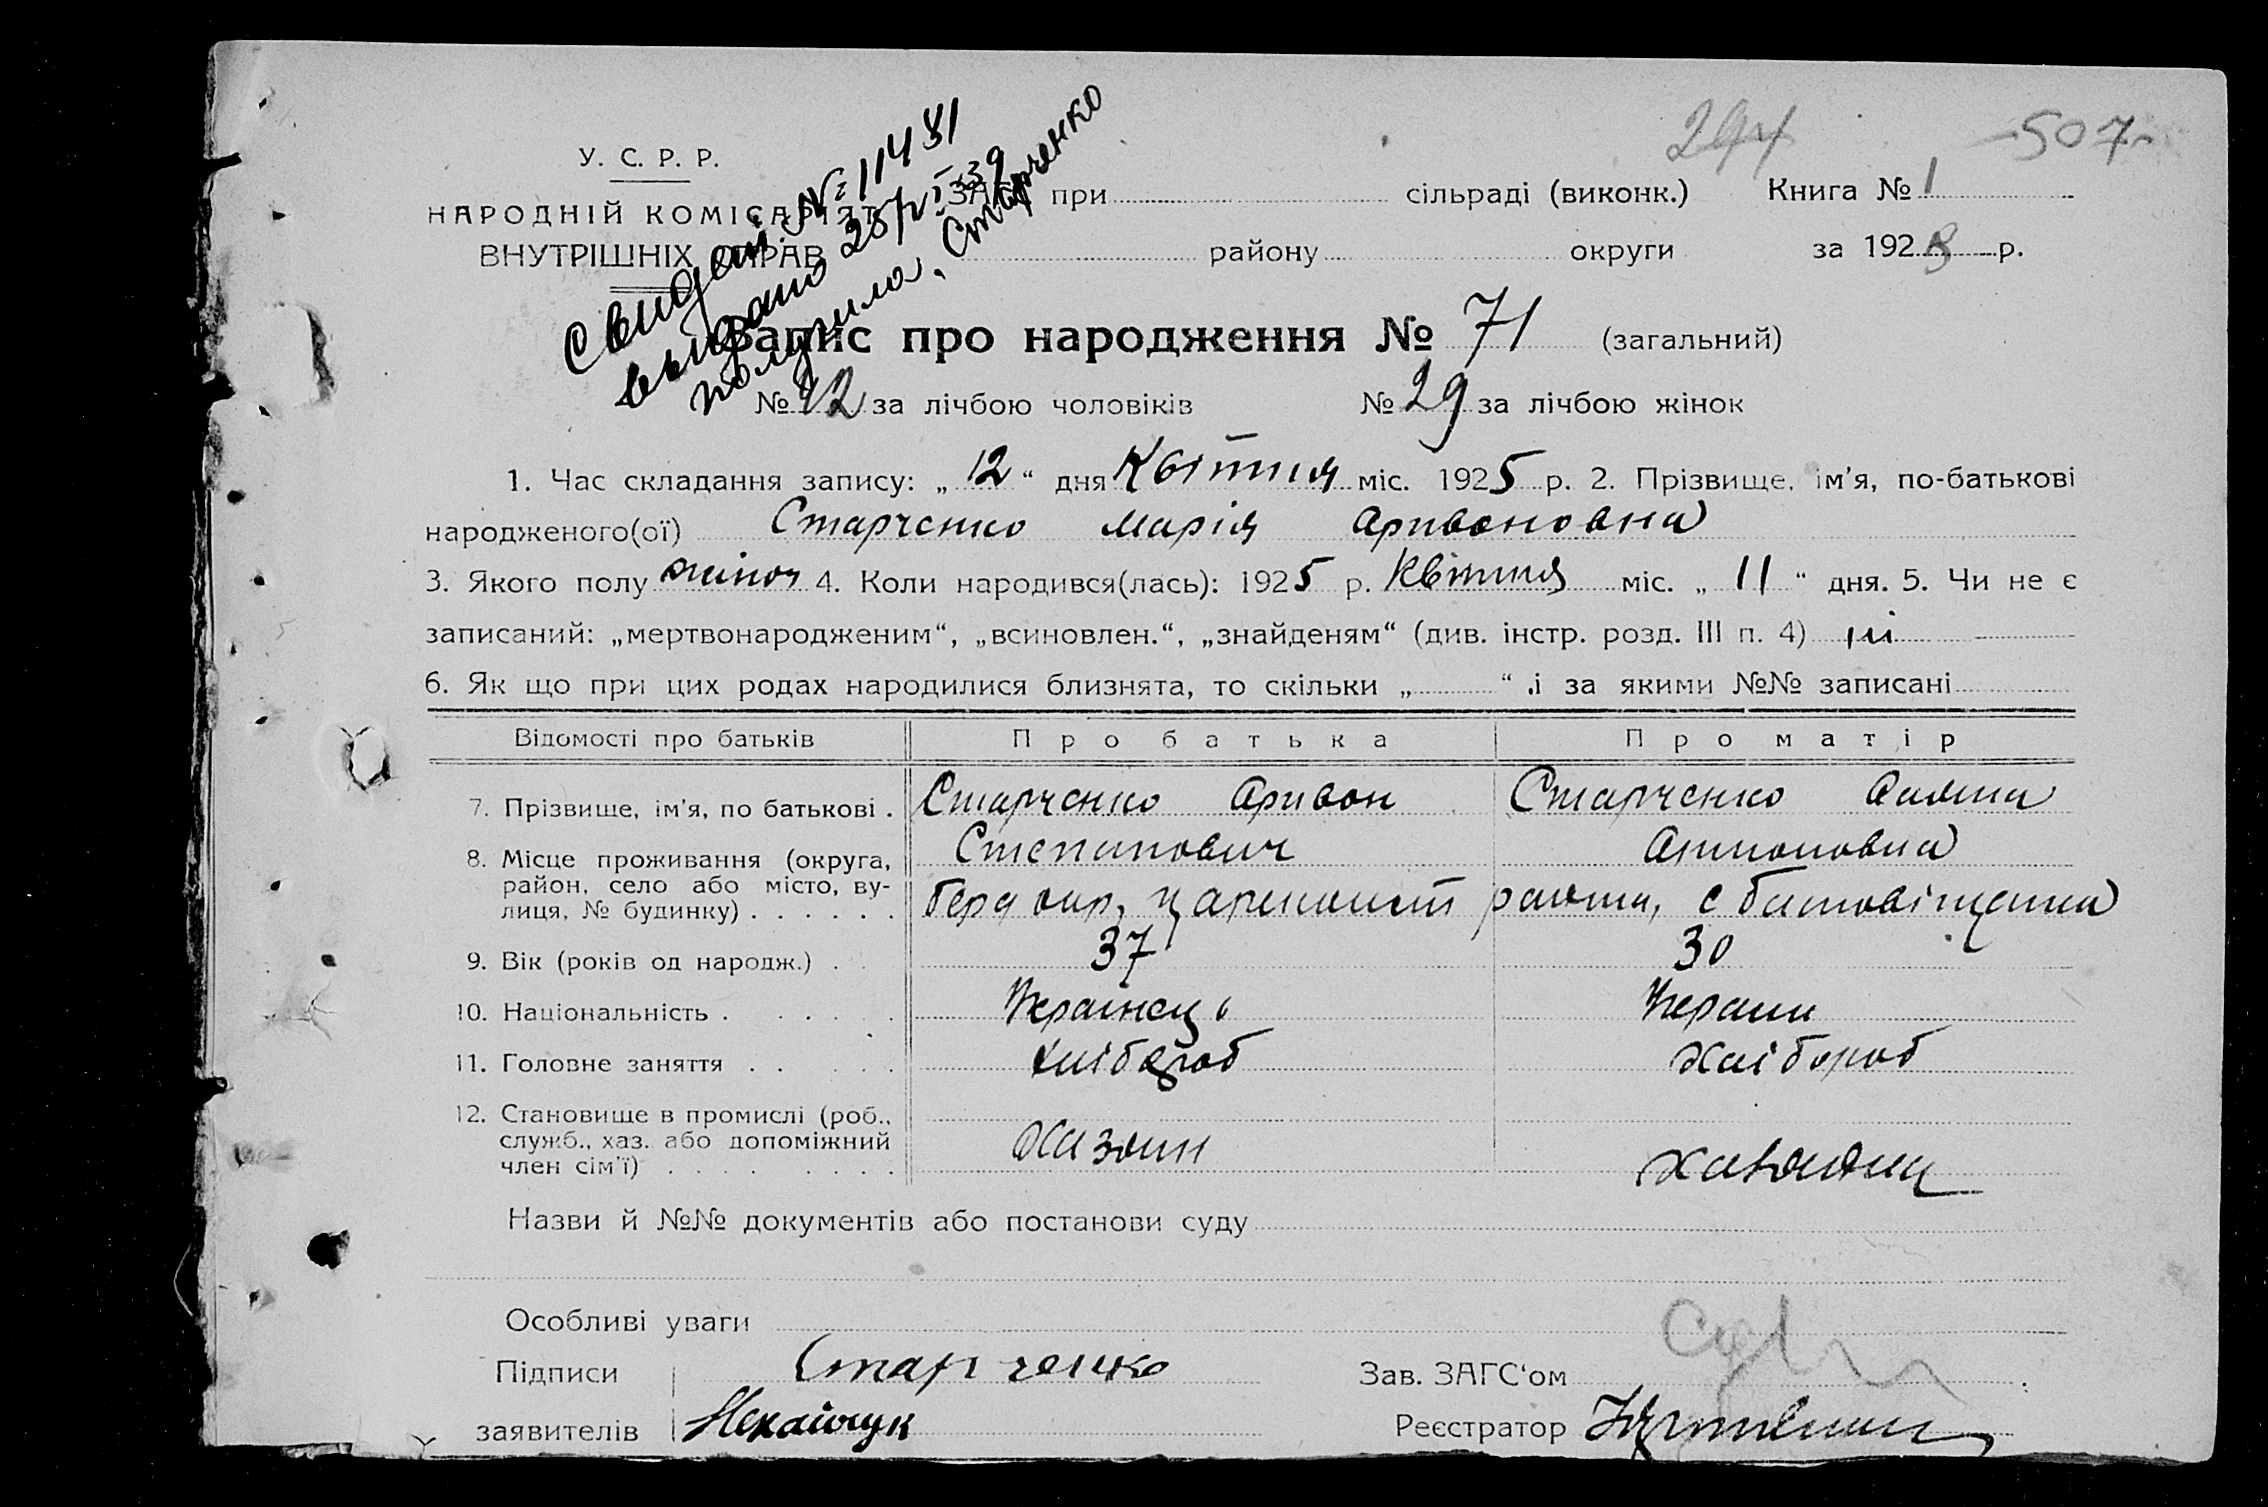 294 -507-
У. С. Р. Р.
НАРОДНІЙ КОМІСАРІЯТ
ВНУТРІШНІХ СПРАВ
ЗАГС при сільраді (виконк.) Книга № 1
району округи за 192 р.
Свидет. № 11481
выдано 25/VI-39
получила, Старченко
Запис про народження № 71 (загальний)
№ 42 за лічбою чоловіків № 29 за лічбою жінок
1. Час складання запису: „ 12 “ дня Квітня міс. 1925 р. 2. Прізвище, ім'я, по-батькові
народженого(ої) Старченко Марія Аривоновна
3. Якого полу жіноч 4. Коли народився(лась): 1925 р. Квітня міс. „ 11 “ дня. 5. Чи не є
записаний: „мертвонародженим“, „всиновлен.“, „знайденям“ (див. інстр. розд. III п. 4) ні
6. Як що при цих родах народилися близнята, то скільки „ “ .і за якими №№ записані
Відомості про батьків Про батька Про матір
7. Прізвище, ім'я, по батькові . Старченко Аривон Старченко
Степанович Антоновна
8. Місце проживання (округа,
район, село або місто, ву-
лиця, № будинку) . . . . . . Берд окр, района, с
9. Вік (років од народж.) . 37 30
10. Національність . . . . . Українець Украин
11. Головне заняття . . . . . хлібороб хлібороб
12. Становище в промислі (роб.,
служб., хаз. або допоміжний
член сім'ї) . . . . . . . . Хазоин
Назви й №№ документів або постанови суду
Особливі уваги
Підписи Старченко Зав. ЗАГС‘ом
заявителів Реєстратор